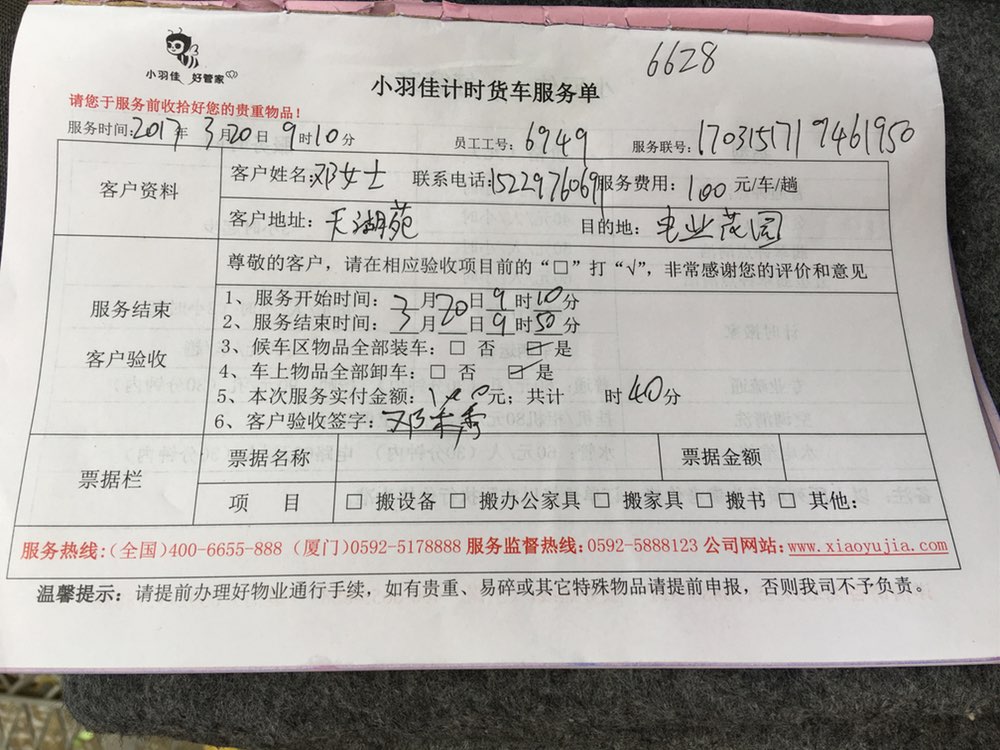 6628
小羽佳 好管家
小羽佳计时货车服务单
请您于服务前收拾好您的贵重物品！
服务时间：2017年3月20日9时10分 员工工号：6949 服务联号：1703151719461950
客户资料
客户姓名：邓女士 联系电话：15229760691 服务费用：100元/车/趟
客户地址：天湖苑 目的地：电业花园
服务结束
客户验收
尊敬的客户，请在相应验收项目前的“□”打“√”，非常感谢您的评价和意见
1、服务开始时间：3月20日9时10分
2、服务结束时间：3月20日9时50分
3、候车区物品全部装车：□ 否 ☑ 是
4、车上物品全部卸车：□ 否 ☑ 是
5、本次服务实付金额：元；共计 时40分
6、客户验收签字：邓
票据栏
票据名称 票据金额
项 目 □ 搬设备 □ 搬办公家具 □ 搬家具 □ 搬书 □ 其他：
服务热线：(全国)400-6655-888 (厦门)0592-5178888 服务监督热线：0592-5888123 公司网站：www.xiaoyujia.com
温馨提示：请提前办理好物业通行手续，如有贵重、易碎或其它特殊物品请提前申报，否则我司不予负责。